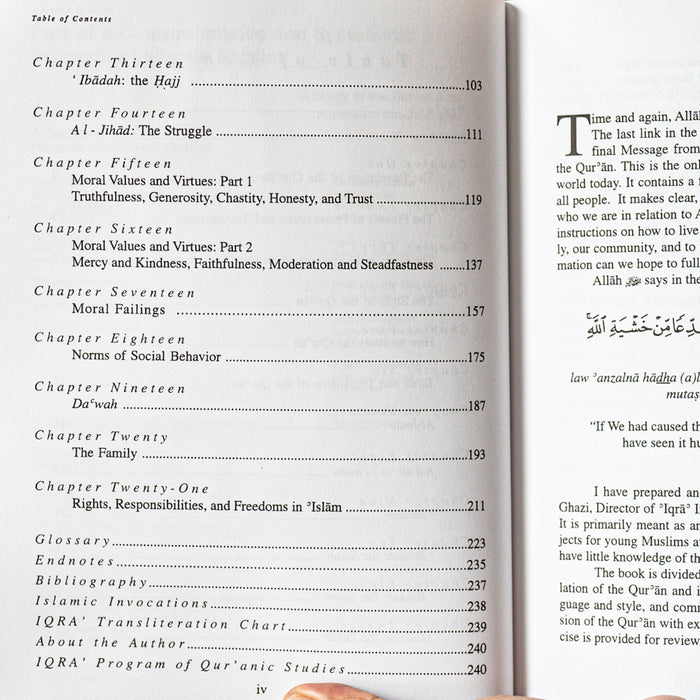 Table of Contents
Chapter Thirteen
ʿIbādah: the Ḥajj ..........103
Chapter Fourteen
Al-Jihād: The Struggle ..........111
Chapter Fifteen
Moral Values and Virtues: Part 1
Truthfulness, Generosity, Chastity, Honesty, and Trust ..........119
Chapter Sixteen
Moral Values and Virtues: Part 2
Mercy and Kindness, Faithfulness, Moderation and Steadfastness ........137
Chapter Seventeen
Moral Failings ..........157
Chapter Eighteen
Norms of Social Behavior ..........175
Chapter Nineteen
Daʿwah ..........187
Chapter Twenty
The Family ..........193
Chapter Twenty-One
Rights, Responsibilities, and Freedoms in ʾIslām ..........211
Glossary..........223
Endnotes..........235
Bibliography..........237
Islamic Invocations..........238
IQRA' Transliteration Chart..........239
About the Author..........240
IQRA' Program of Qur'anic Studies..........240
iv
Time and again, Allā
The last link in the
final Message from
the Qurʾān. This is the onl
world today. It contains a
all people. It makes clear,
who we are in relation to A
instructions on how to live
ly, our community, and to
mation can we hope to full
Allāh says in the
مِّنْ خَشْيَةِ اللَّهِ
law ʾanzalnā hādha (a)l
mutaṣ
"If We had caused th
have seen it hu
I have prepared an
Ghazi, Director of ʾIqrāʾ I
It is primarily meant as an
jects for young Muslims a
have little knowledge of th
The book is divided
lation of the Qurʾān and i
guage and style, and comm
sion of the Qurʾān with ex
cise is provided for review